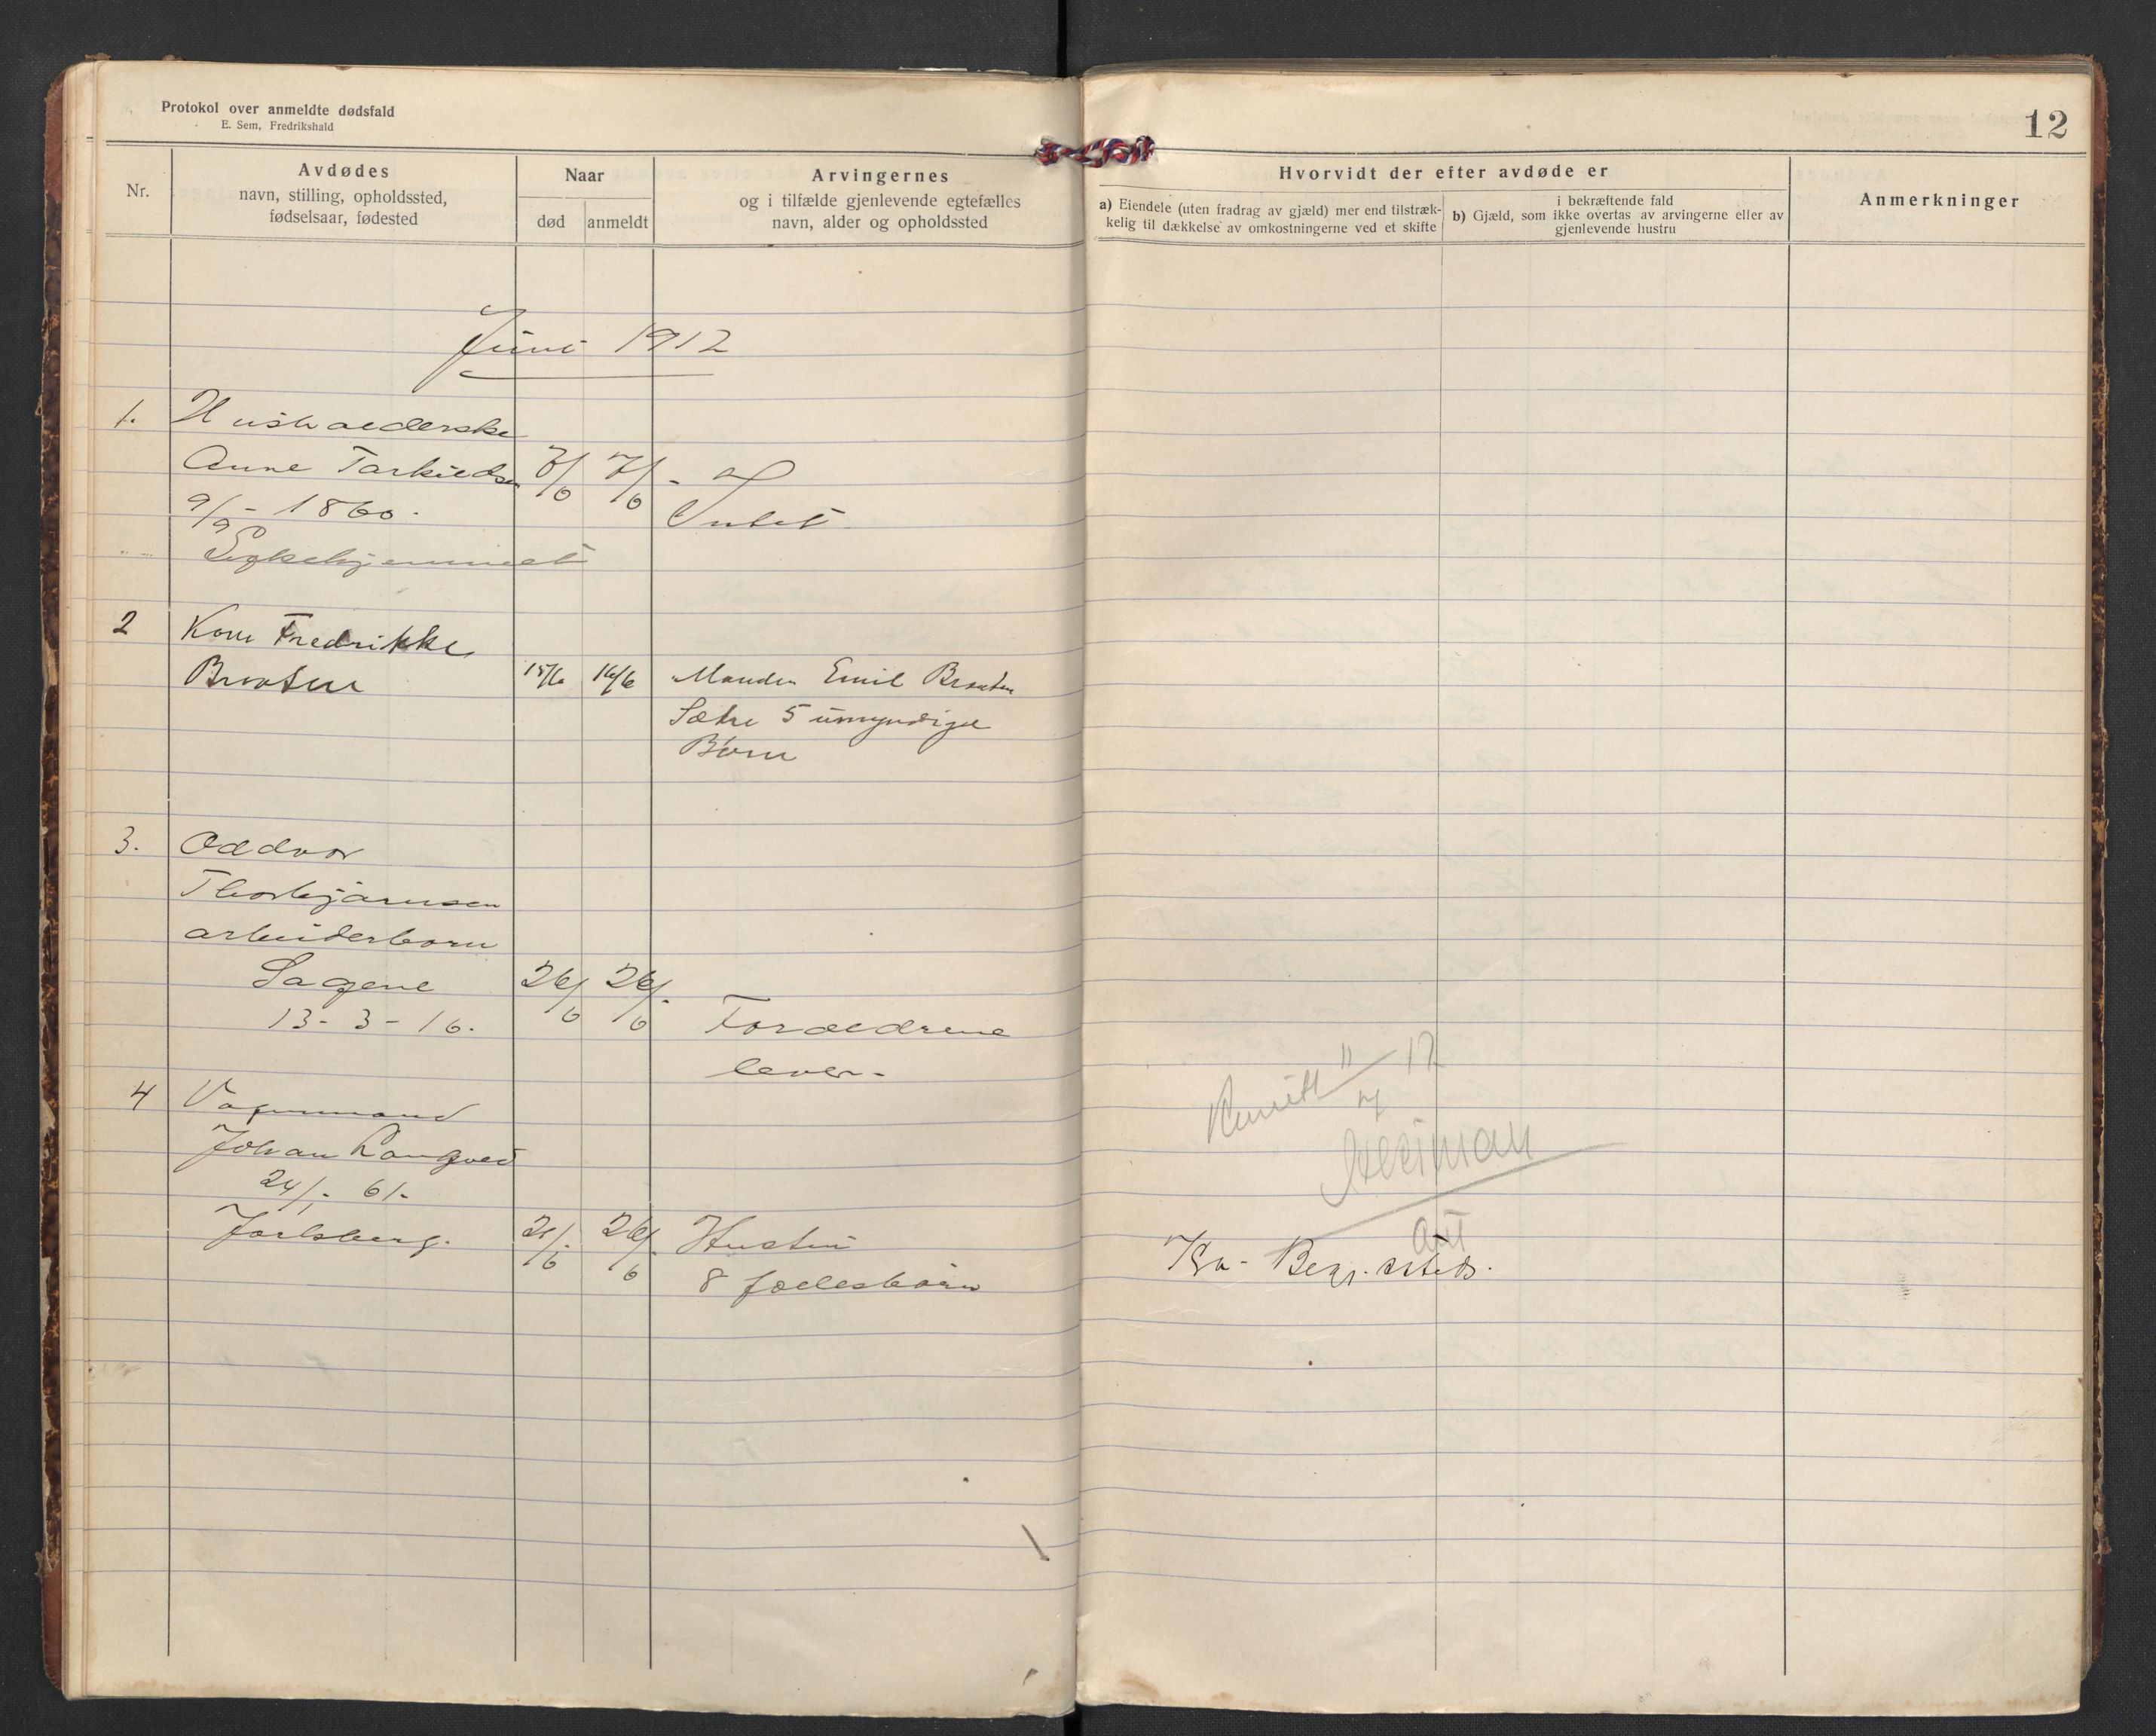 Protokol over anmeldte dødsfald
E. Sem, Fredrikshald
12
Nr.
Avdødes
navn, stilling, opholdssted,
fødselsaar, fødested
Naar
død
anmeldt
Arvingernes
og i tilfælde gjenlevende egtefælles
navn, alder og opholdssted
Hvorvidt der efter avdøde er
a) Eiendele (uten fradrag av gjæld) mer end tilstræk-
kelig til dækkelse av omkostningerne ved et skifte
i bekræftende fald
b) Gjæld, som ikke overtas av arvingerne eller av
gjenlevende hustru
Anmerkninger
Juni 1912
1. Husholderske
Anne Tarkildsen 7/6 7/6 -
9/9 - 1860. Intet
Sykehjemmet
2 Kone Fredrikke
Braaten 15/6 16/6 Manden Emil Braaten
Sætre 5 umyndige
Børn
3. Oddvar
Thorbjørnsen
arbeiderbarn
Sagene 26/6 26/6.
13-3-16. Forældrene
lever.
4 Vognmand
Johan Langved
24/1. 61.
Jarlsberg. 25/6 26/6 Hustru
8 fællesbørn
11/7 17
Heiman
ass